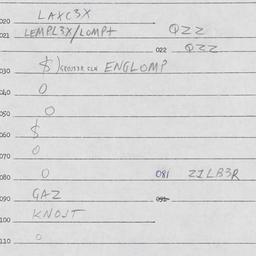 020 LAXC3X
021 LEMPL3X/LOMP+ QZZ
022 QZZ
030 $) ENGLOMP
040 0
050 0
060 $
070 0
080 0 081 Z1LB3R
090 GAZ 091
100 KNOJT
110 0